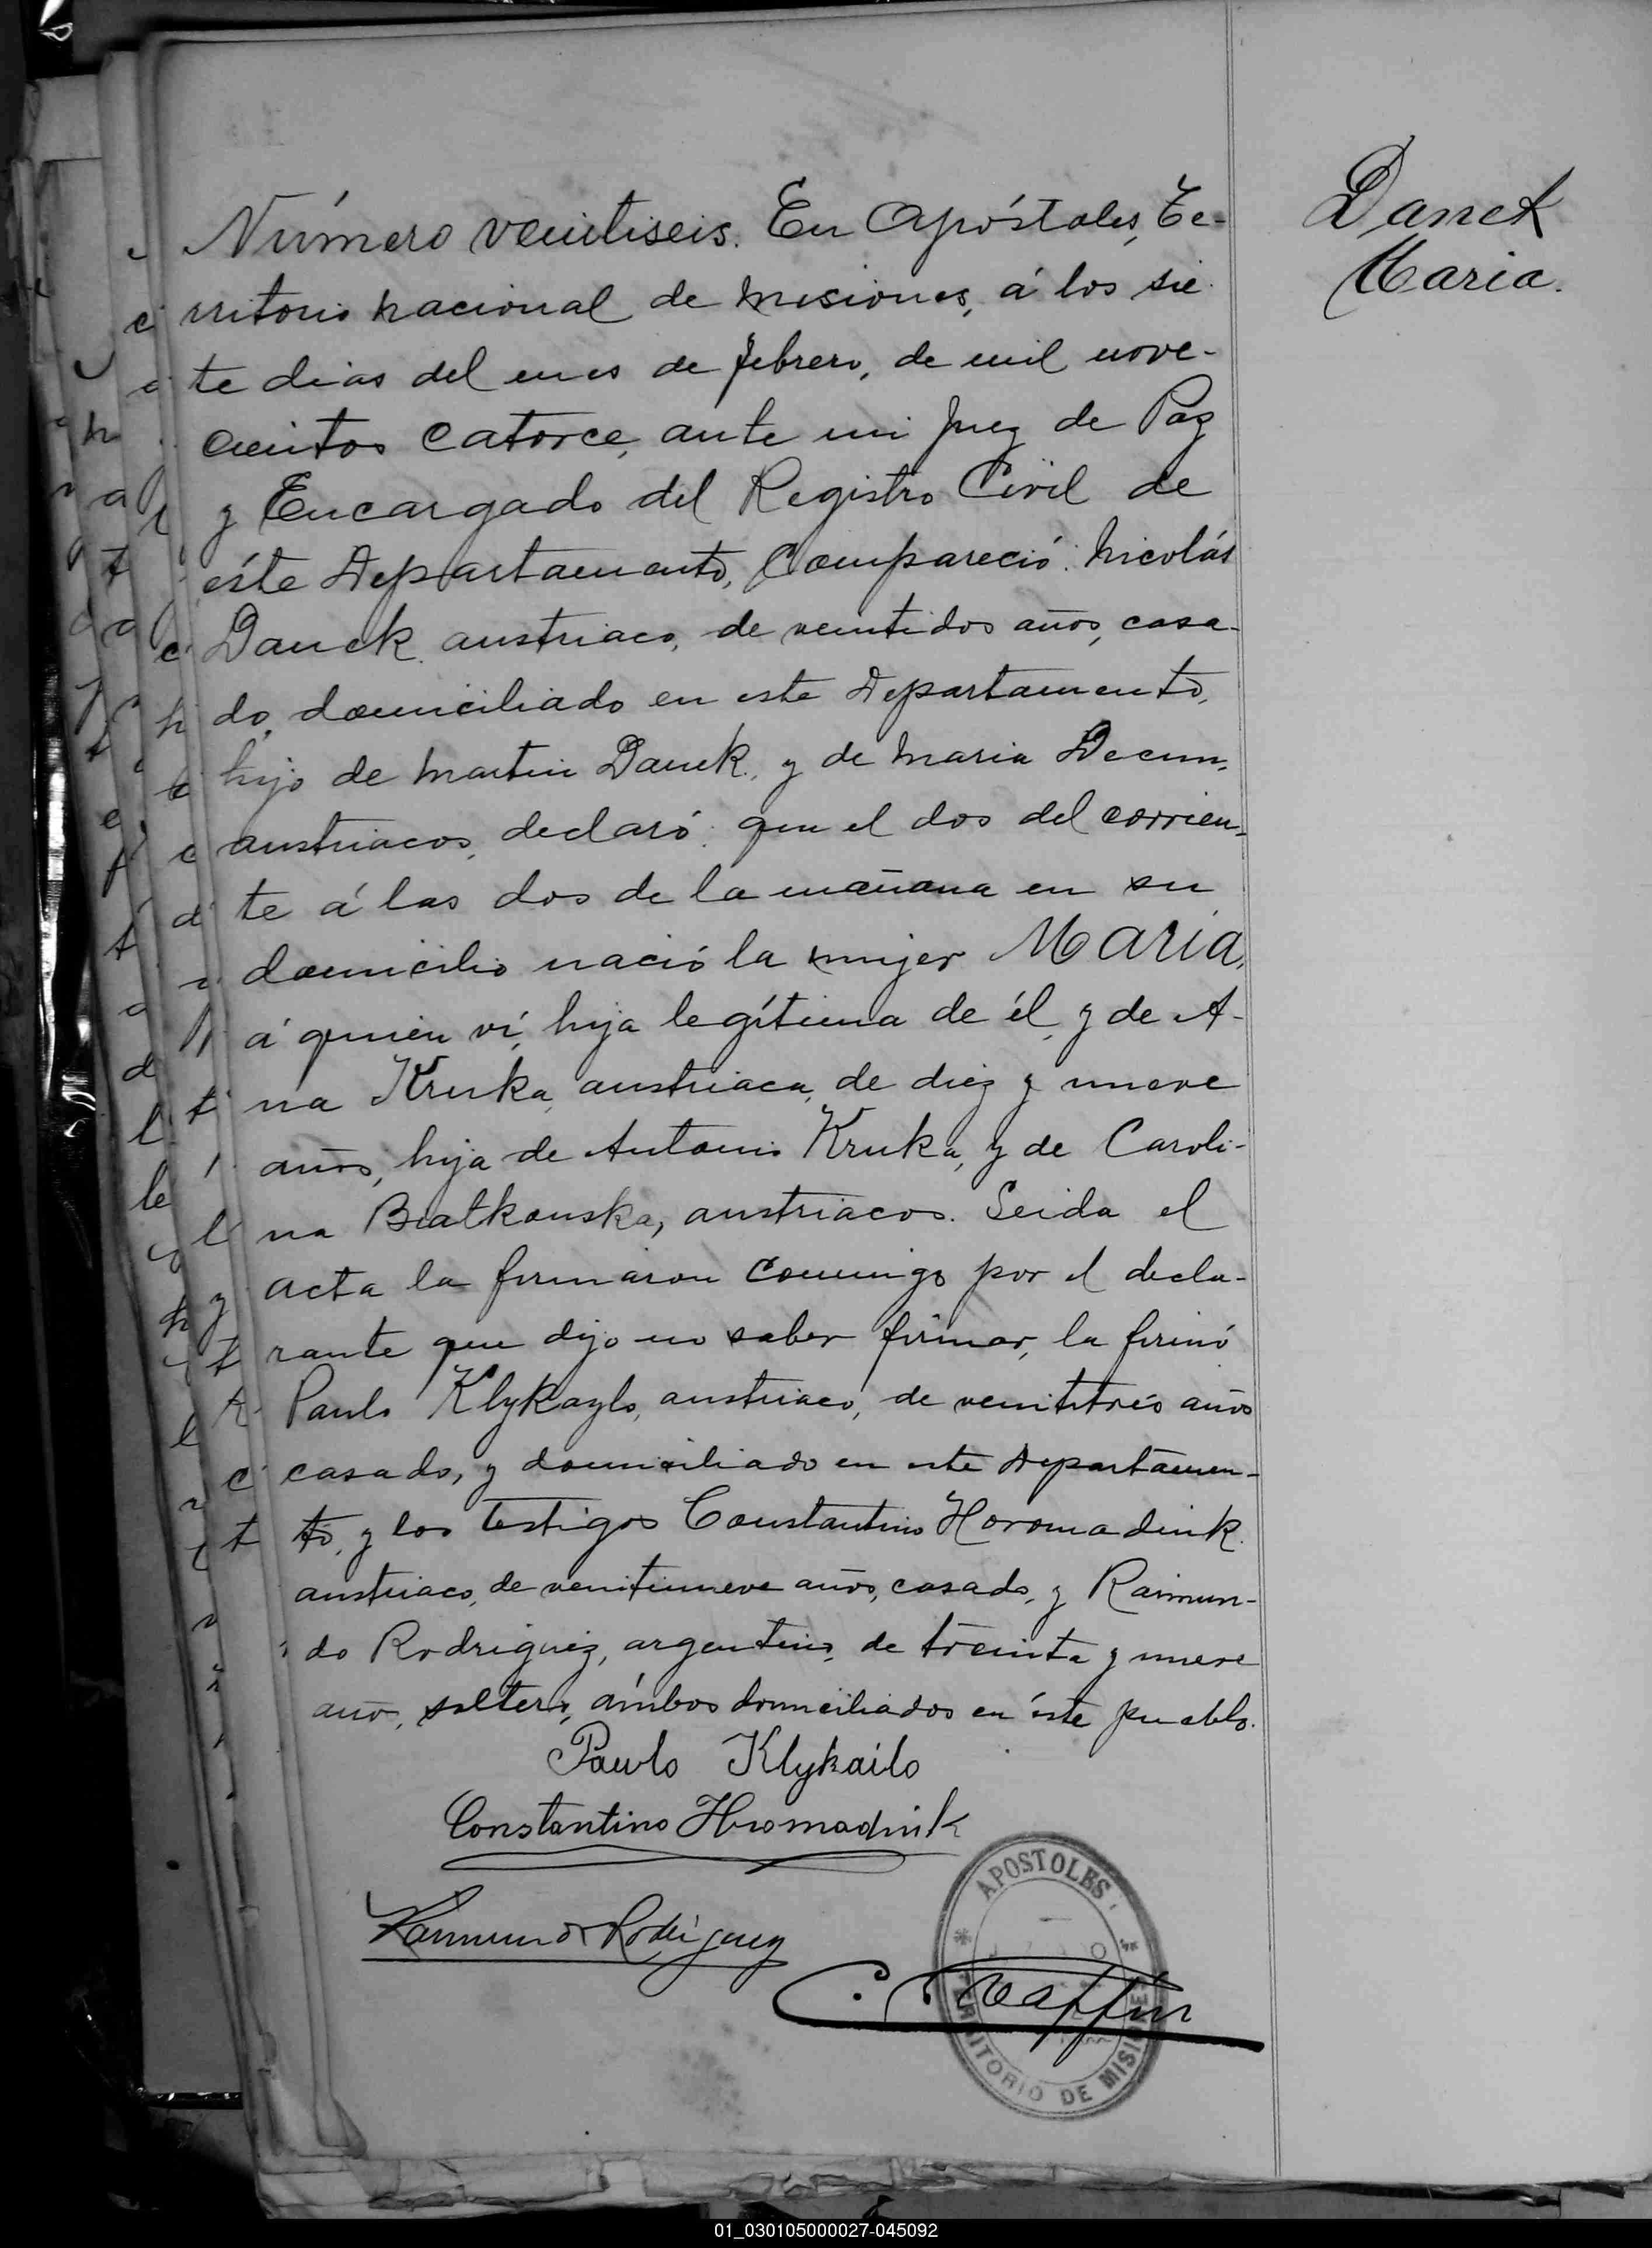 Danek
Maria.
Número veintiseis. En Apóstoles, Te-
rritorio nacional de misiones, á los sie-
te dias del mes de febrero, de mil nove-
cientos catorce, ante mi Juez de Paz
y Encargado del Registro Civil de
éste Departamento, Compareció: Nicolás
Danek, austriaco, de veintidos años, casa-
do, domiciliado en este Departamento,
hijo de Martin Danek, y de Maria Decun,
austriacos, declaró: que el dos del corrien-
te á las dos de la mañana en su
domicilio nació la mujer MARIA,
á quien ví, hija legítima de él, y de A-
na Kruka, austriaca, de diez y nueve
años, hija de Antonio Kruka, y de Caroli-
na Bialkouska, austriacos. Leida el
acta la firmaron conmigo por el decla-
rante que dijo no saber firmar, la firmó
Paulo Klykaylo, austriaco, de veintitrés años
casado, y domiciliado en este Departamen-
to, y los testigos Constantino Horomadink.
austriaco, de veintinueve años, casado, y Raimun-
do Rodriguez, argentino, de treinta y nueve
años, soltero, ámbos domiciliados en éste pueblo.
Pawlo Klykailo
Constantino Hromadnik
Raimundo Rodriguez
APOSTOLES
TERRITORIO DE MISIONES
01_030105000027-045092